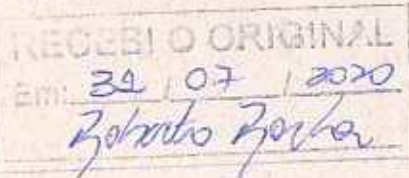 RECEBI O ORIGINAL
Em: 31 / 07 / 2020
Roberto Rocha